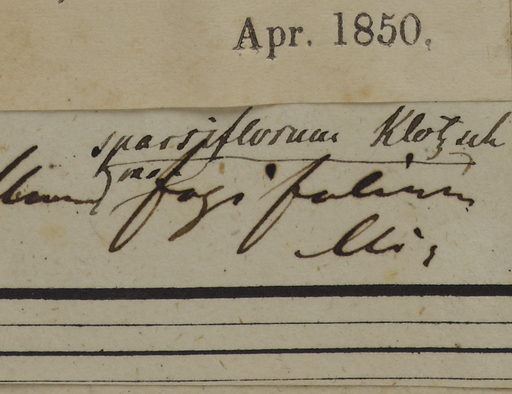 Apr. 1850.
sparsiflorum Klotzsch
fagifolium
Miq.